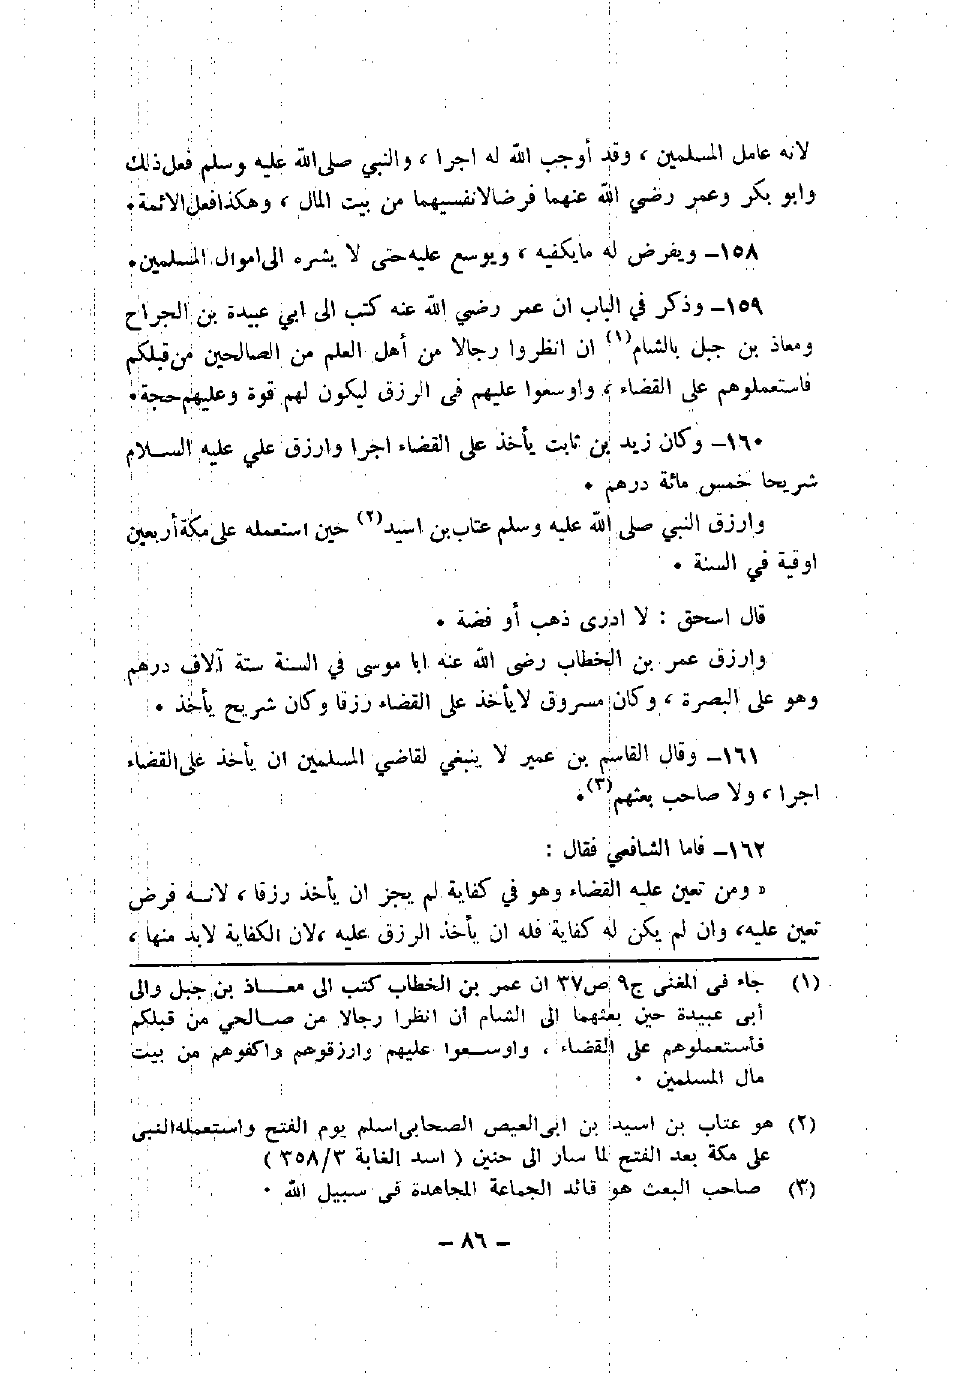 لانه عامل المسلمين ، وقد أوجب الله له اجرا ، والنبي صلى الله عليه وسلم فعل ذلك
وابو بكر وعمر رضي الله عنهما فرضا لانفسيهما من بيت المال ، وهكذا فعل الائمة .
١٥٨ــ ويفرض له مايكفيه ، ويوسع عليه حتى لا يشره الى اموال المسلمين .
١٥٩ــ وذكر في الباب ان عمر رضي الله عنه كتب الى ابي عبيدة بن الجراح
ومعاذ بن جبل بالشام(١) ان انظروا رجالا من أهل العلم من الصالحين من قبلكم
فاستعملوهم على القضاء ، واوسعوا عليهم في الرزق ليكون لهم قوة وعليهم حجة .
١٦٠ــ وكان زيد بن ثابت يأخذ على القضاء اجرا وارزق علي عليه الســلام
شريحا خمس مائة درهم .
وارزق النبي صلى الله عليه وسلم عتاب بن اسيد(٢) حين استعمله على مكة أربعين
اوقية في السنة .
قال اسحق : لا ادرى ذهب أو فضة .
وارزق عمر بن الخطاب رضى الله عنه ابا موسى في السنة ستة آلاف درهم
وهو على البصرة ، وكان مسروق لايأخذ على القضاء رزقا وكان شريح يأخذ .
١٦١ــ وقال القاسم بن عمير لا ينبغي لقاضي المسلمين ان يأخذ على القضاء
اجرا ، ولا صاحب بعثهم(٣).
١٦٢ــ فاما الشافعي فقال :
« ومن تعين عليه القضاء وهو في كفاية لم يجز ان يأخذ رزقا ، لانــه فرض
تعين عليه، وان لم يكن له كفاية فله ان يأخذ الرزق عليه ،لان الكفاية لابد منها ،
(١) جاء فى المغنى ج٩ ص٣٧ ان عمر بن الخطاب كتب الى معــاذ بن جبل والى
أبى عبيدة حين بعثهما الى الشام أن انظرا رجالا من صــالحي من قبلكم
فأستعملوهم على القضاء ، واوســعوا عليهم وارزقوهم واكفوهم من بيت
مال المسلمين .
(٢) هو عتاب بن اسيد بن ابى العيص الصحابى اسلم يوم الفتح واستعمله النبى
على مكة بعد الفتح لما سار الى حنين ( اسد الغابة ٣/٣٥٨ )
(٣) صاحب البعث هو قائد الجماعة المجاهدة فى سبيل الله .
– ٨٦ –